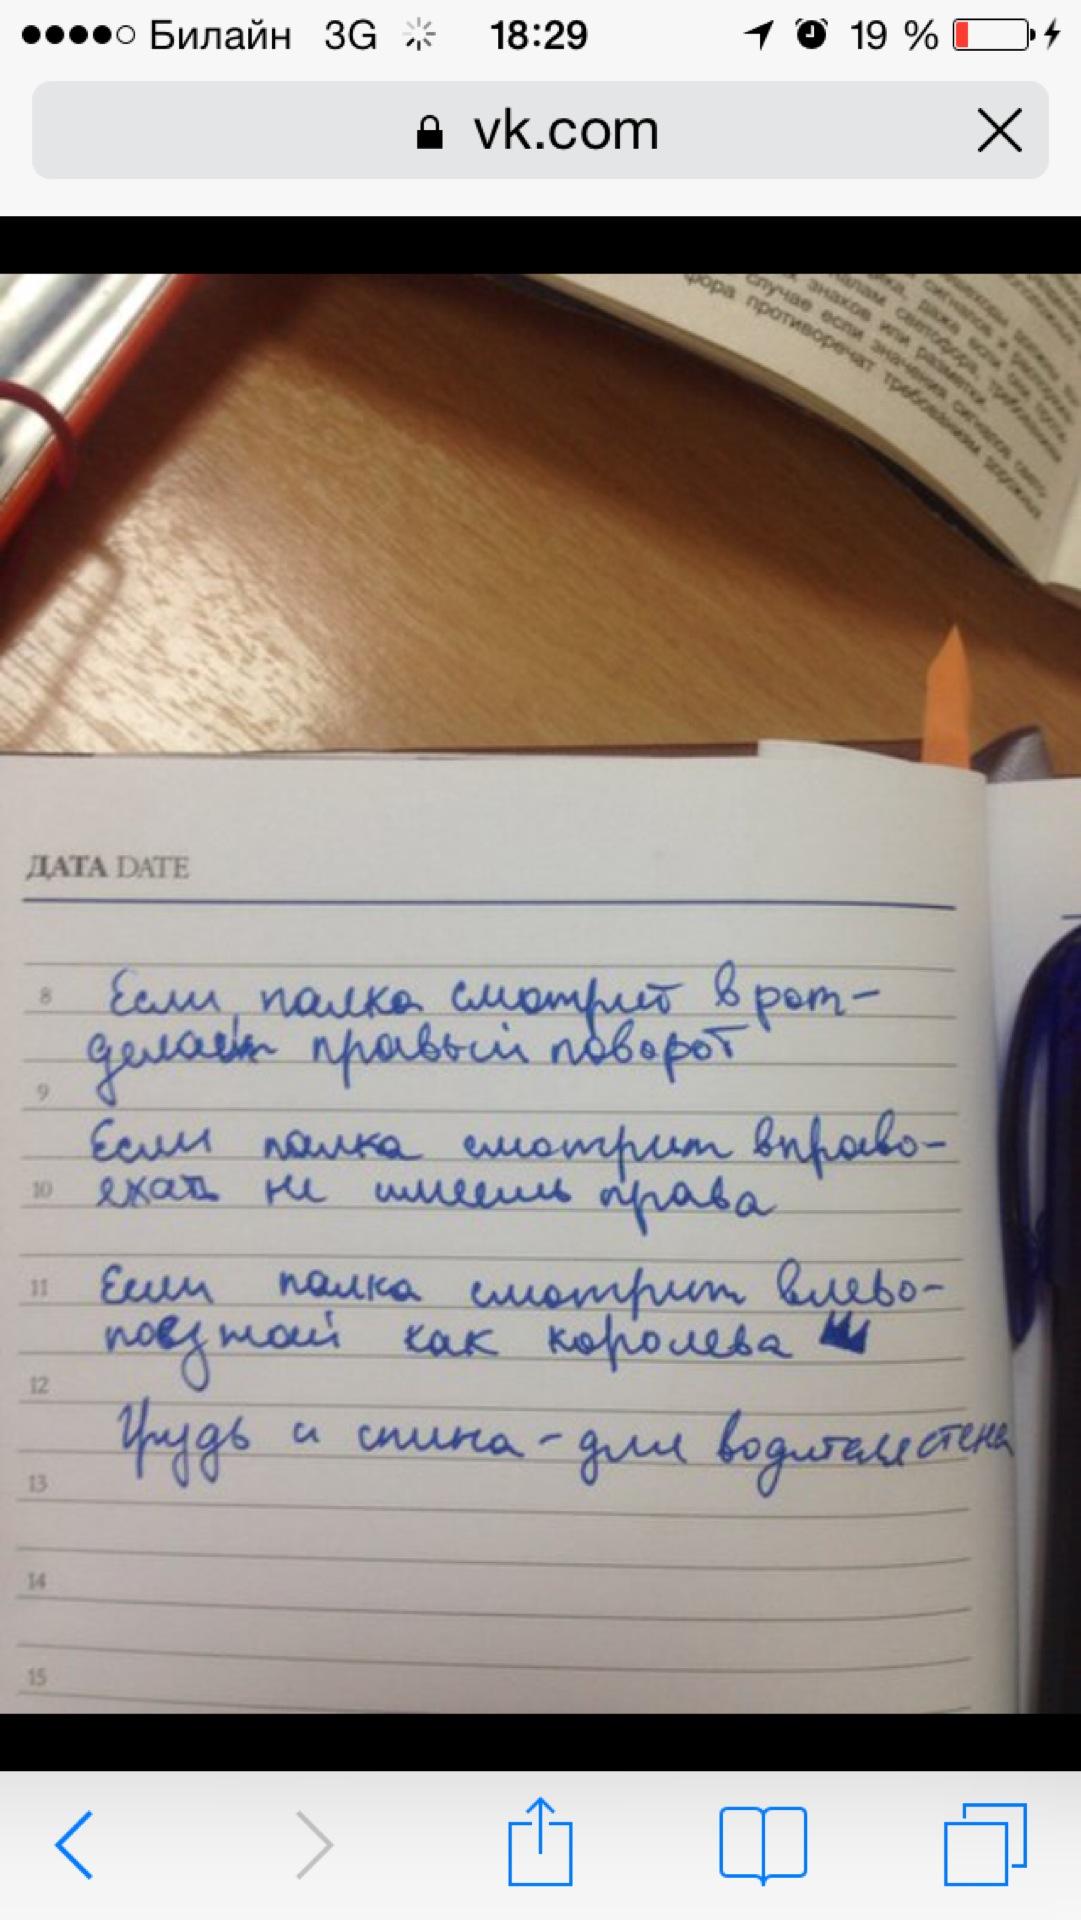 Билайн 3G 18:29 19 %
vk.com
случае если значения сигналов свето-
фора противоречат требованиям дорожных
ДАТА DATE
8 Если палка смотрит в рот-
делаем правый поворот
9
Если палка смотрит вправо-
10 ехать не имеешь права
11 Если палка смотрит влево-
поезжай как королева
12
Грудь и спина - для водителя стена
13
14
15